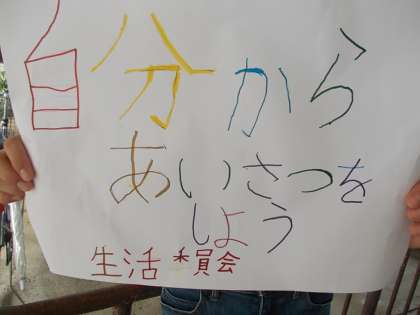 自分から
あいさつを
しよう
生活委員会